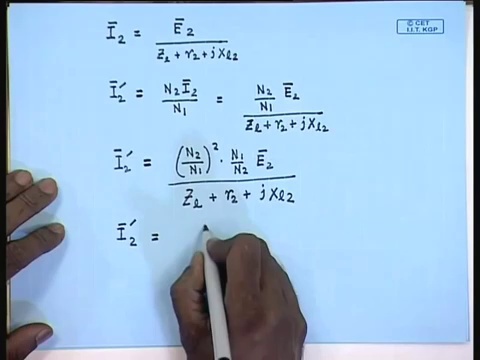 © CET
I.I.T. KGP
Ī₂ = Ē₂ / (Z_l + r₂ + j x_l2)
Ī₂′ = N₂Ī₂ / N₁ = (N₂/N₁) Ē₂ / (Z_l + r₂ + j x_l2)
Ī₂′ = (N₂/N₁)² · (N₁/N₂) Ē₂ / (Z_l + r₂ + j x_l2)
Ī₂′ =